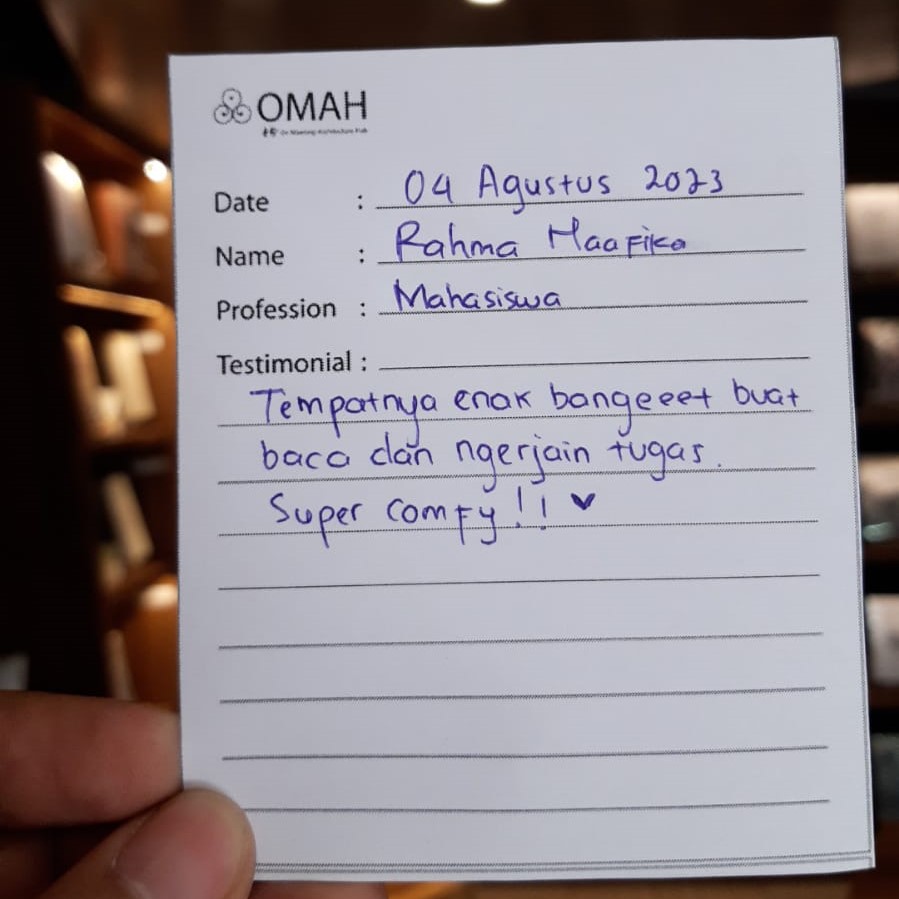 OMAH
Date : 04 Agustus 2023
Name : Rahma Haafika
Profession : Mahasiswa
Testimonial :
Tempatnya enak bangeeet buat
baca dan ngerjain tugas.
Super comfy!! ♥